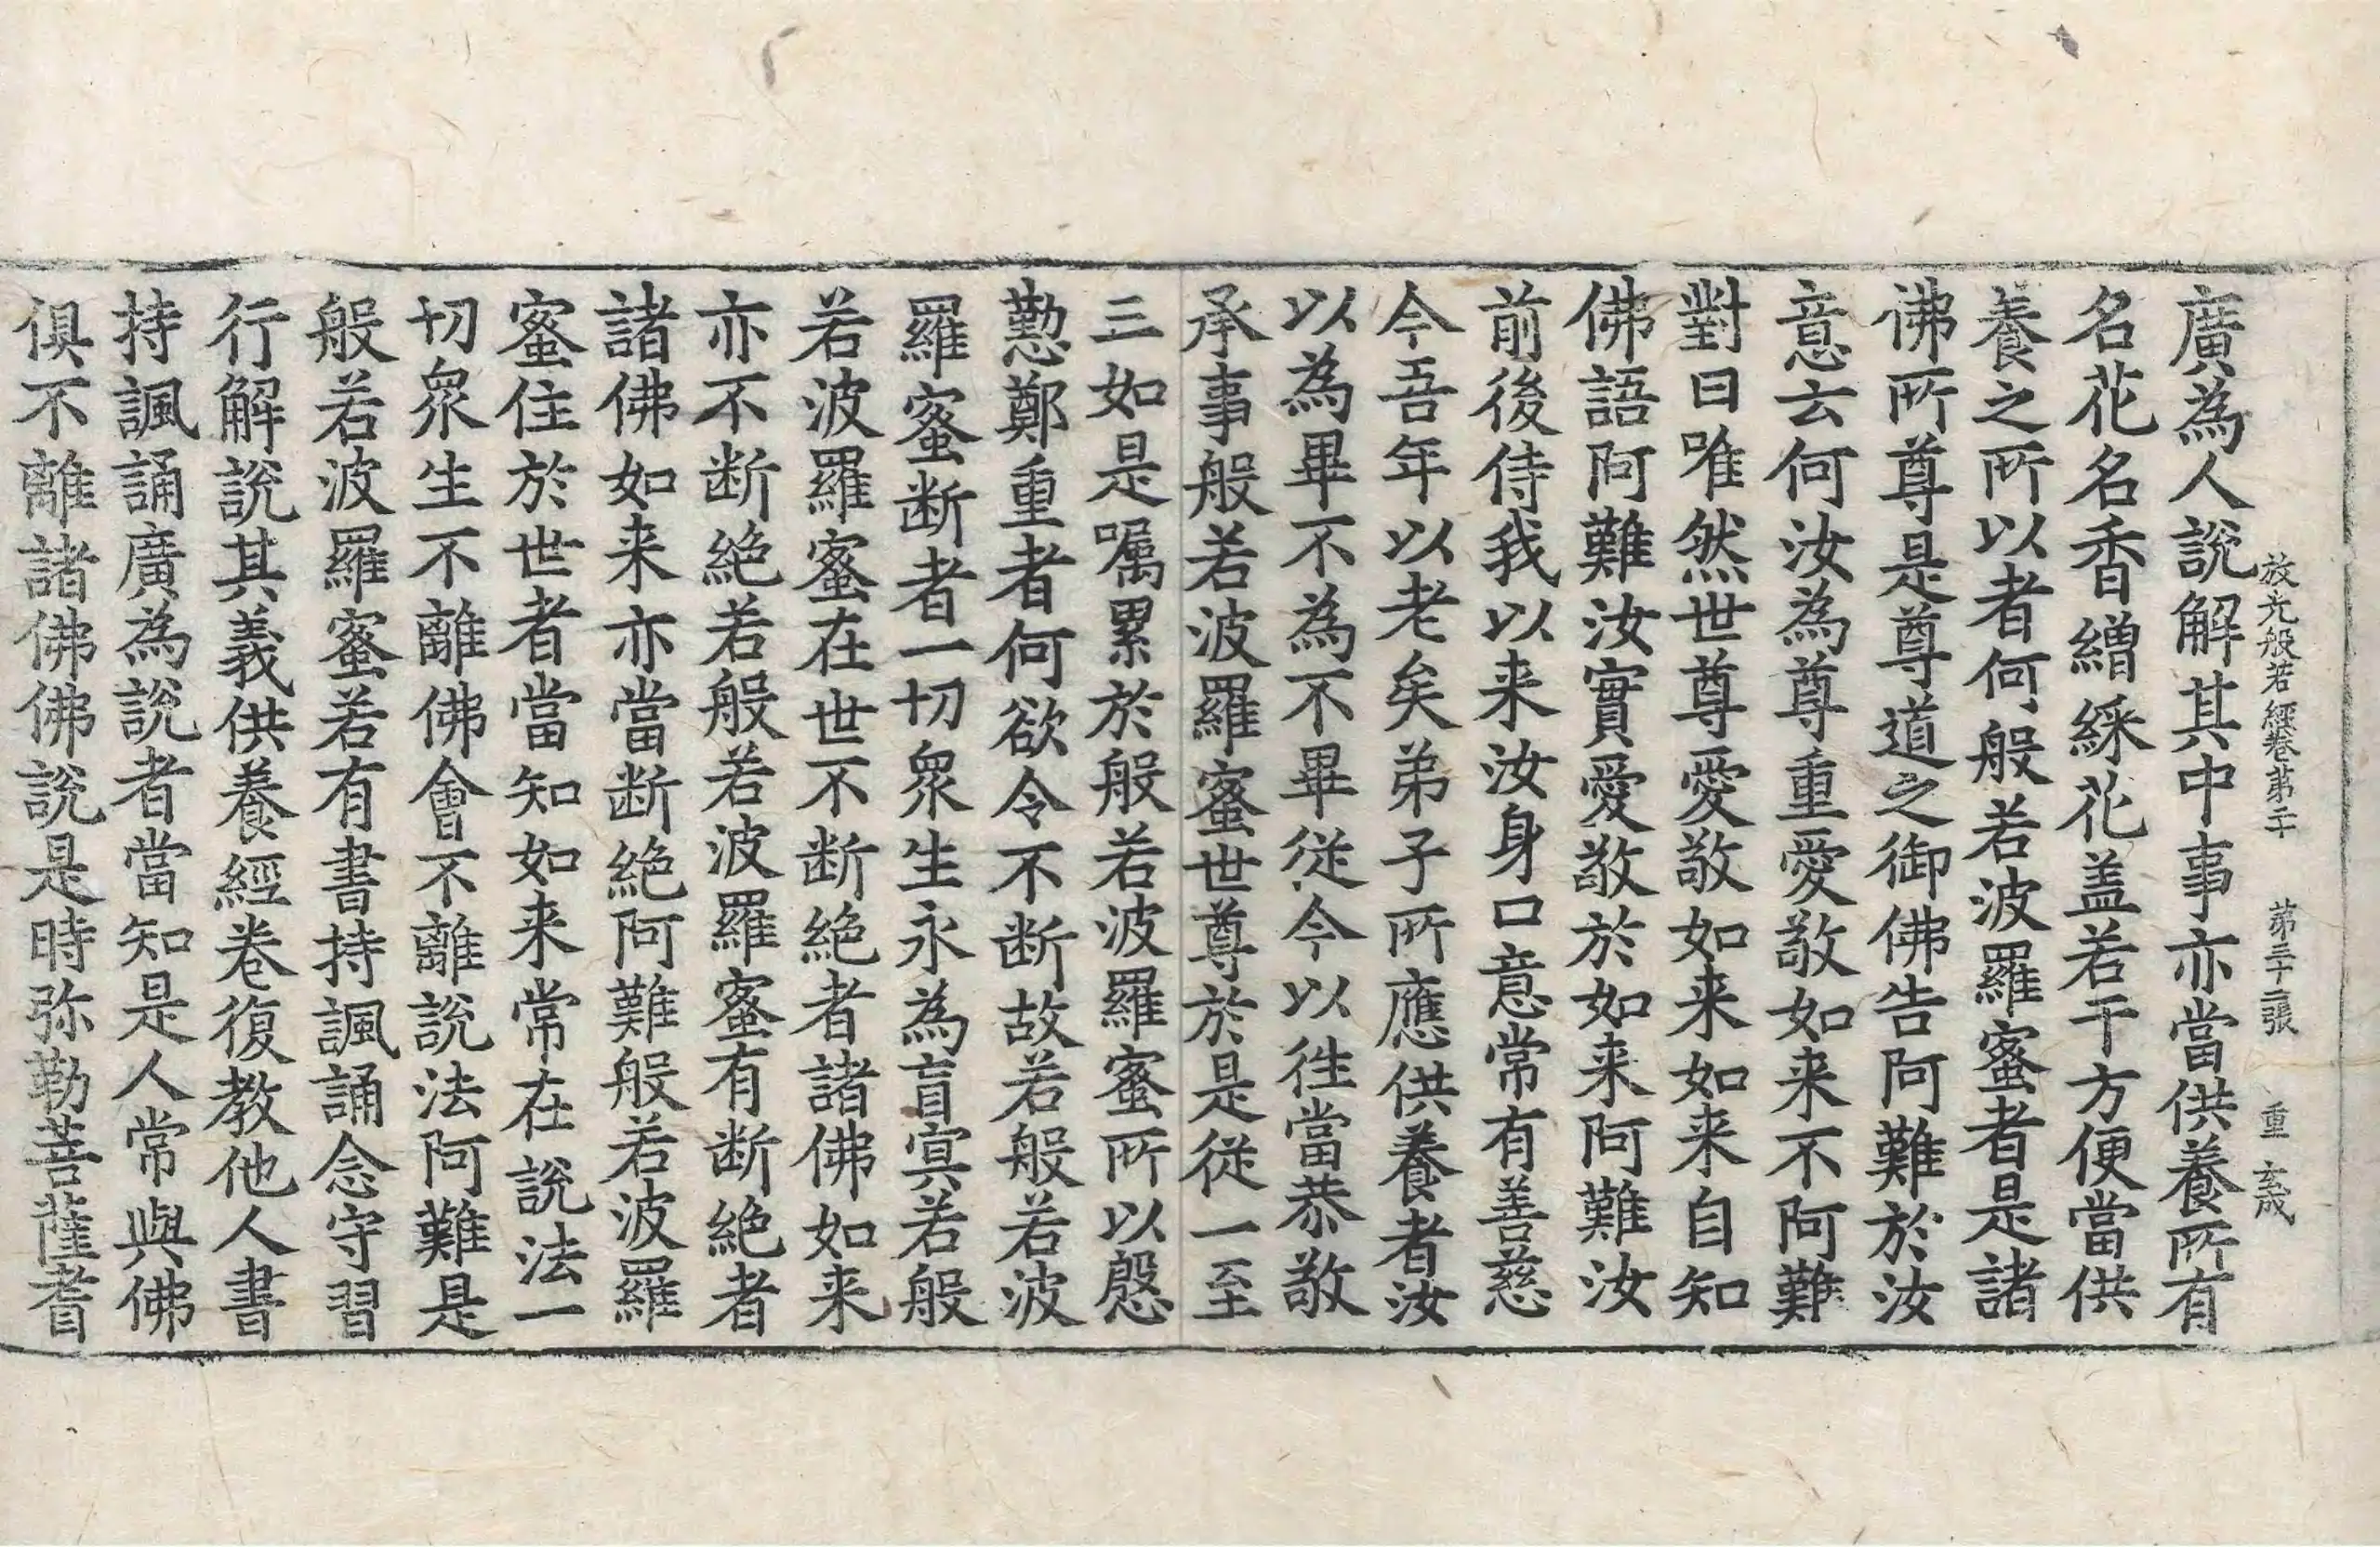 放光般若經卷第二十 第三十二張 重 玄成
廣為人說解其中事亦當供養所有
名花名香繒綵花盖若干方便當供
養之所以者何般若波羅蜜者是諸
佛所尊是尊道之御佛告阿難於汝
意云何汝為尊重愛敬如来不阿難
對曰唯然世尊愛敬如来如来自知
佛語阿難汝實愛敬於如来阿難汝
前後侍我以来汝身口意常有善慈
今吾年以老矣弟子所應供養者汝
以為畢不為不畢従今以徃當恭敬
承事般若波羅蜜世尊於是従一至
三如是嘱累於般若波羅蜜所以慇
懃鄭重者何欲令不断故若般若波
羅蜜断者一切衆生永為盲冥若般
若波羅蜜在世不断絶者諸佛如来
亦不断絶若般若波羅蜜有断絶者
諸佛如来亦當断絶阿難般若波羅
蜜住於世者當知如来常在說法一
切衆生不離佛會不離說法阿難是
般若波羅蜜若有書持諷誦念守習
行解說其義供養經卷復教他人書
持諷誦廣為說者當知是人常與佛
俱不離諸佛佛說是時弥勒菩薩耆